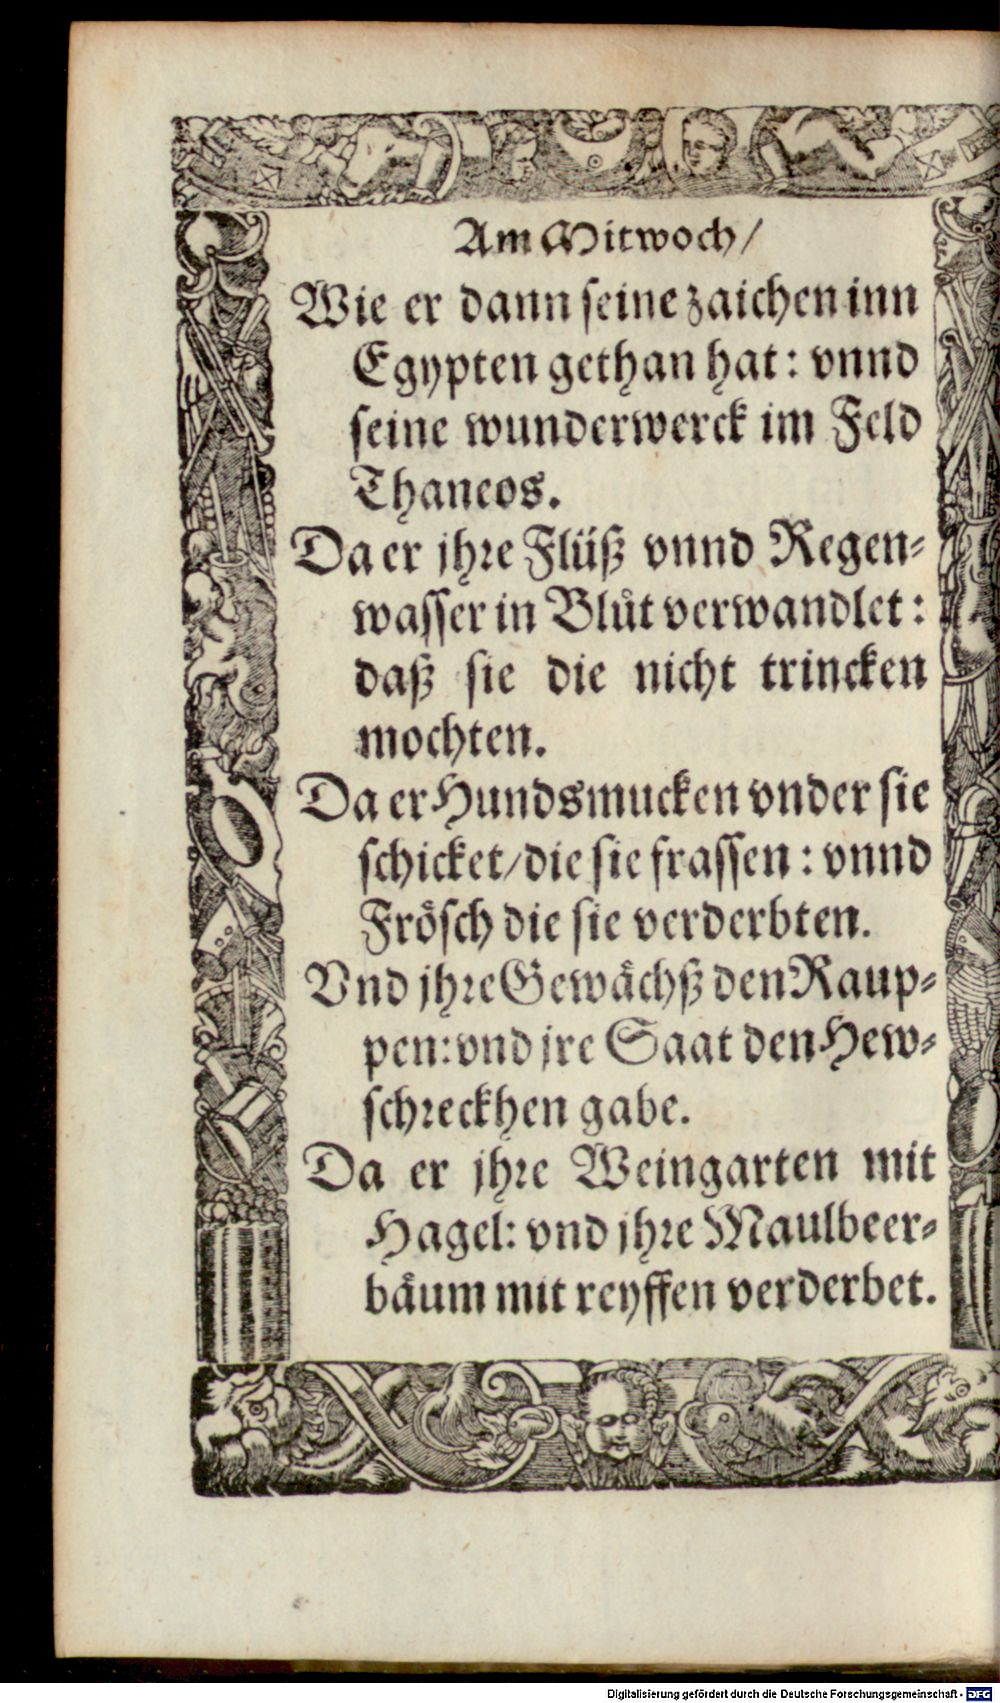 Am Mitwoch/
Wie er dann ſeine zaichen inn
Egypten gethan hat: vnnd
ſeine wunderwerck im Feld
Thaneos.
Da er jhꝛe Flüß vnnd Regen⸗
waſſer in Blůt verwandlet:
daß ſie die nicht trincken
mochten.
Da er Hundsmucken vnder ſie
ſchicket/die ſie fraſſen: vnnd
Fröſch die ſie verderbten.
Vnd jhꝛe Gewächß den Raup⸗
pen: vnd jre Saat den Hew⸗
ſchꝛeckhen gabe.
Da er jhꝛe Weingarten mit
Hagel: vnd jhꝛe Maulbeer⸗
bäum mit reyffen verderbet.
Digitalisierung gefördert durch die Deutsche Forschungsgemeinschaft - DFG